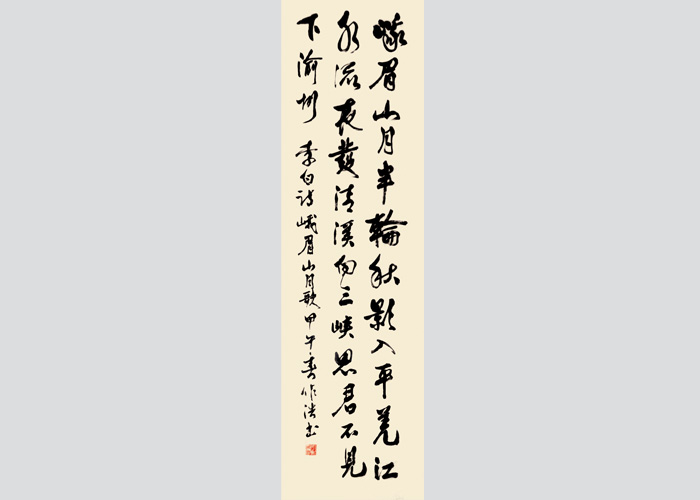 峨眉山月半輪秋影入平羌江
水流夜發清溪向三峡思君不見
下渝州 李白詩峨眉山月歌甲午春作洪书